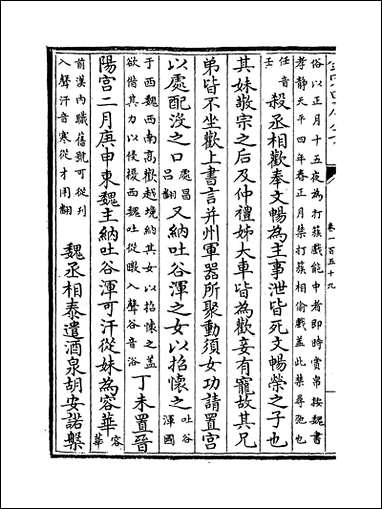 俗以正月十五夜為打蔟戲能中者即時賞帛按魏書
孝静天平四年春正月禁打蔟相偷戲盖此禁尋弛也
任音
壬
殺丞相歡奉文暢為主事泄皆死文暢榮之子也
其妹敬宗之后及仲禮姊大車皆為歡妾有寵故其兄
弟皆不坐歡上書言并州軍器所聚動須女功請置宫
以處配没之口
處昌
吕翻
又納吐谷渾之女以招懷之
吐谷
渾國
于西魏西南髙歡越境納其女以招懷之盖
欲借其力以侵擾西魏吐從暾入聲谷音浴
丁未置晉
陽宫二月庚申東魏主納吐谷渾可汗從妹為容華
容
華
前漢内職舊號可從刋
入聲汗音寒從才用翻
魏丞相泰遣酒泉胡安諾槃
卷一百五十九